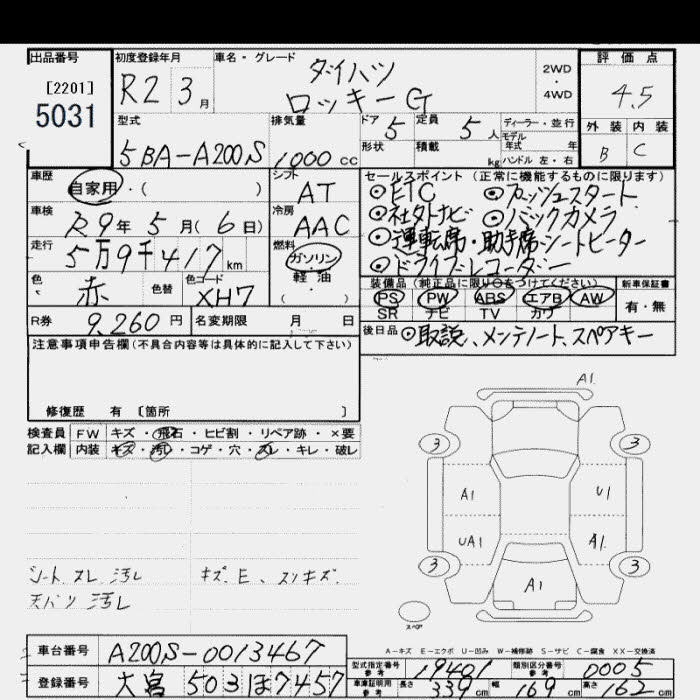 出品番号 初度登録年月 車名・グレード 評価点
[2201]
5031
R2 3月 ダイハツ
ロッキーG
2WD
・
4WD
4.5
外装 内装
B C
型式 排気量 ドア 5 定員 5人 ディーラー・並行
形状 積載 kg モデル年式 年 ハンドル 左・右
5BA-A200S 1000cc
車歴 自家用・( ) シフト AT
車検 R9年5月(6日) 冷房 AAC
走行 5万9千417km 燃料 ガソリン・軽油 ( )
色 赤 色替 色コード XH7
R券 9,260円 名変期限 月 日
セールスポイント(正常に機能するものに限ります)
◎ETC ◎プッシュスタート
◎社外ナビ ◎バックカメラ
◎運転席・助手席シートヒーター
◎ドライブレコーダー
装備品(純正品に限り○をつけてください) 新車保証書
PS PW ABS エアB AW 有・無
SR ナビ TV カワ
後日品 ◎取説、メンテノート、スペアキー
注意事項申告欄(不具合内容等は具体的に記入して下さい)
修復歴 有 〔箇所 〕
検査員 FW キズ・飛石・ヒビ割・リペア跡・×要
記入欄 内装 キズ・汚れ・コゲ・穴・スレ・キレ・破レ
シート スレ 汚レ キズ、E、スリキズ
天バリ 汚レ
A1
3 3
A1 U1
UA1 A1
3 3
A1
スペア
A-キズ E-エクボ U-凹み W-補修跡 S-サビ C-腐食 XX-交換済
車台番号 A200S-0013467
登録番号 大宮 503ほ7457
型式指定番号 参考 19401 類別区分番号 参考 0005
車庫証明用 参考 長さ 339cm 幅 169cm 高さ 162cm